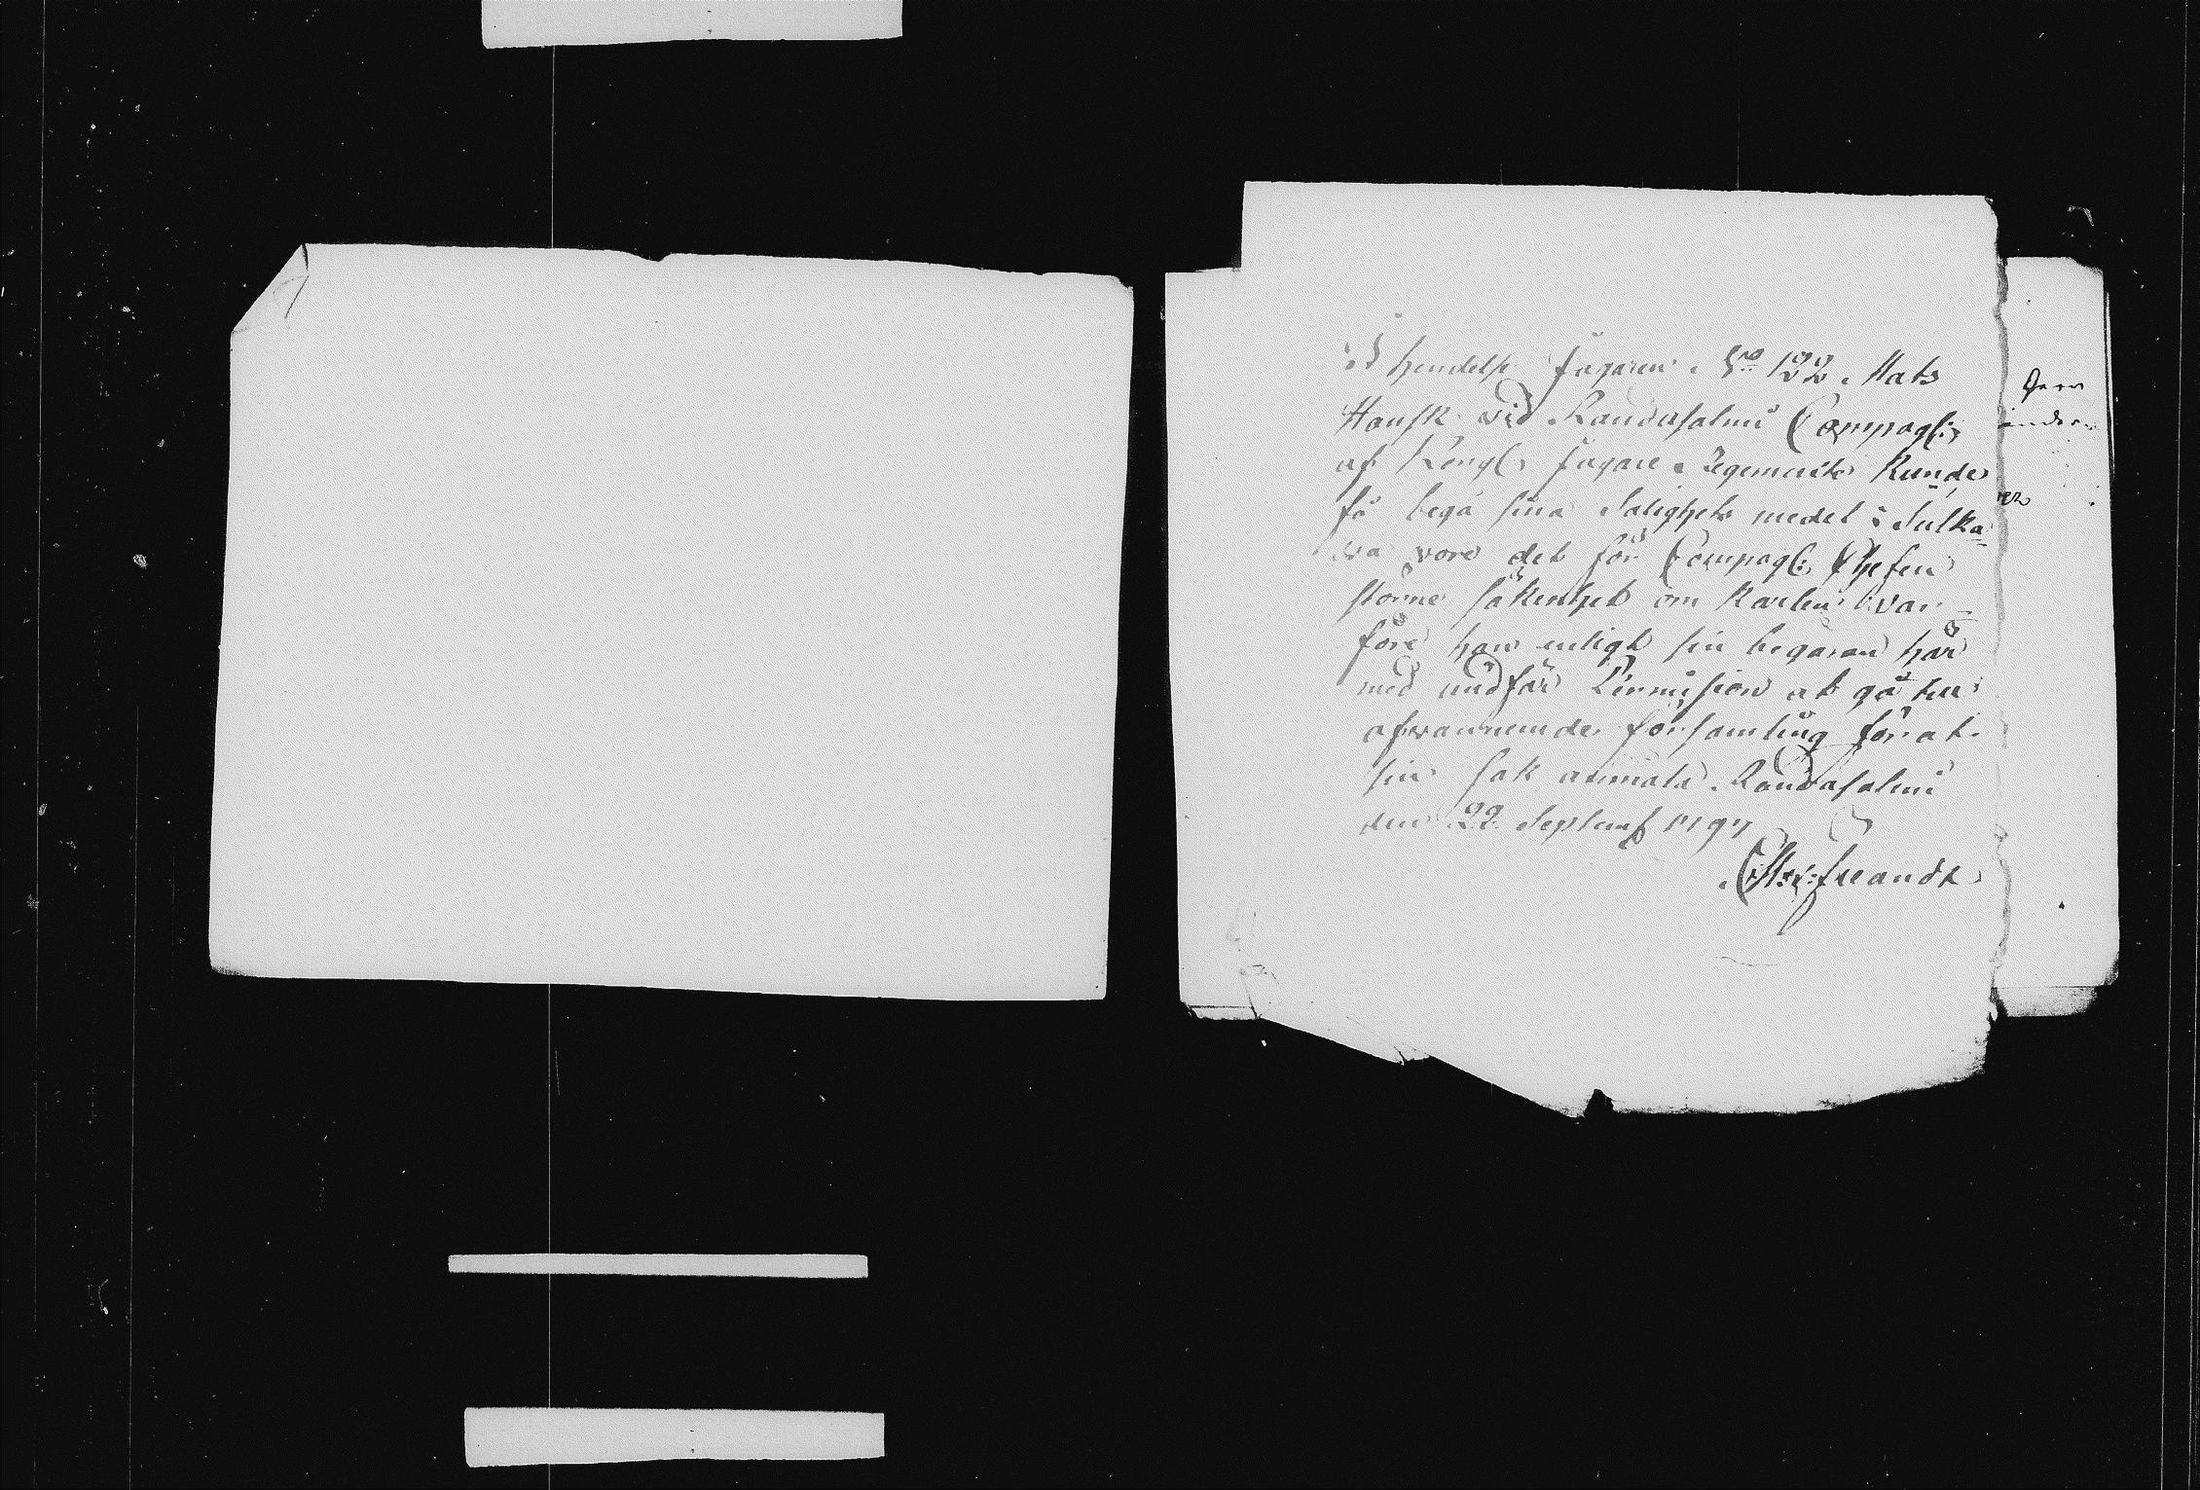 I hendelse Jägaren No 122 Mats
Hansk vid Randasalmi Compagl:
af Kongl: Jägare Regemente kunde
få begå sina Salighets medel i Sulka-
va vore det för Compagl: Chefen
större säkerhet om karlen var-
före han enligt sin begäran här
med undfår Permission at gå till
ofvannemde församling för at
sin sak anmäla Randasalmi
den 22 Septemb 1797